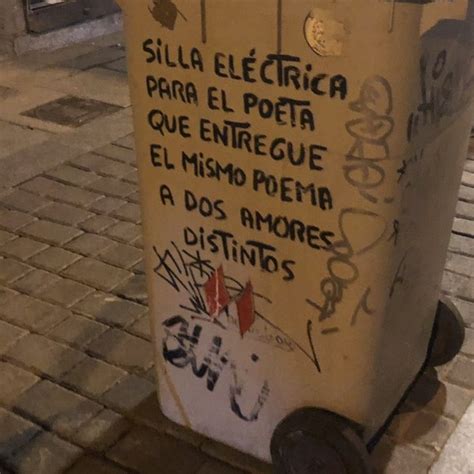 SILLA ELÉCTRICA
PARA EL POETA
QUE ENTREGUE
EL MISMO POEMA
A DOS AMORES
DISTINTOS